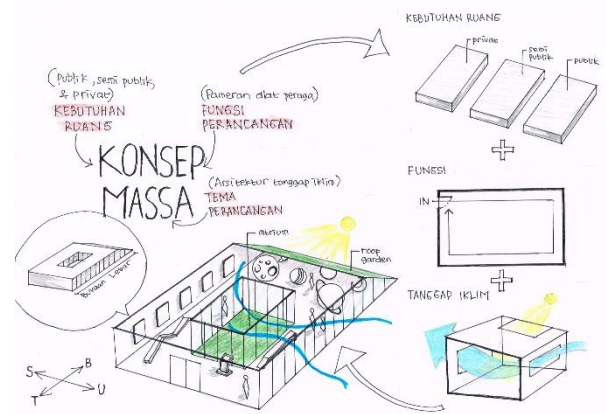 KEBUTUHAN RUANG
privat
semi
publik
publik
(Publik, semi publik,
& privat)
KEBUTUHAN
RUANG
(Pameran alat peraga)
FUNGSI
PERANCANGAN
KONSEP
MASSA
(Arsitektur tanggap iklim)
TEMA
PERANCANGAN
FUNGSI
IN
atrium
roof
garden
Bukaan Lebar
TANGGAP IKLIM
S
B
T
U